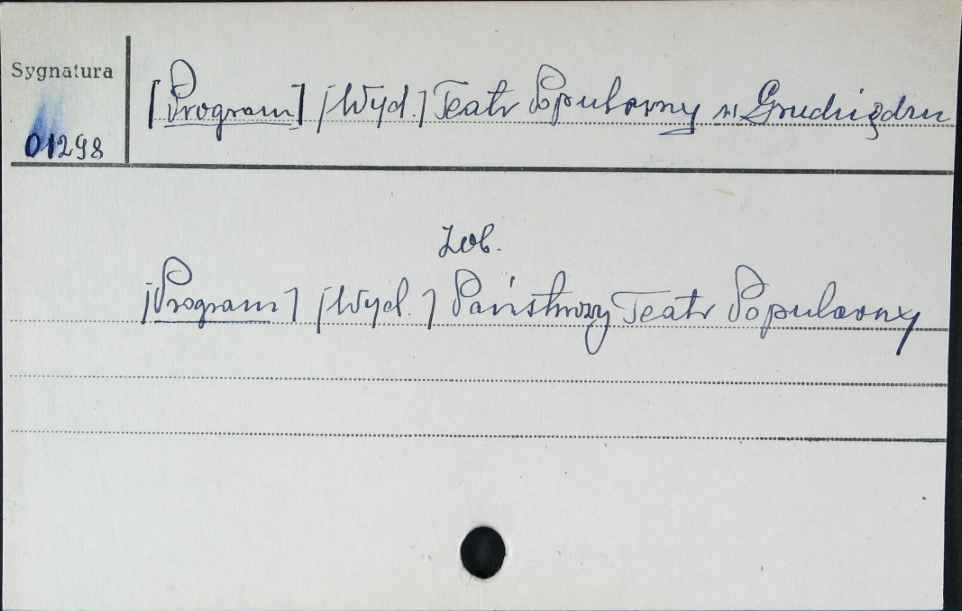 Sygnatura
[Program] [Wyd.] Teatr Popularny w Grudziądzu
01298
Zob.
[Program] [Wyd.] Państwowy Teatr Popularny